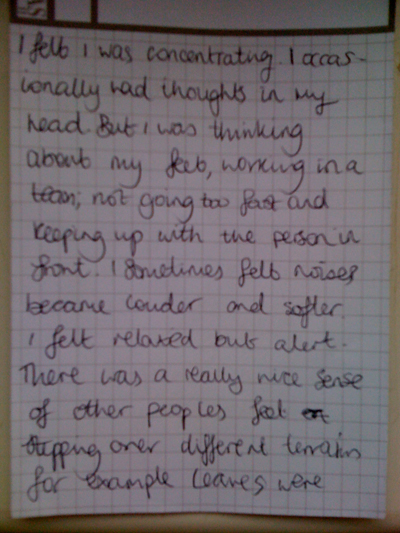 I felt I was concentrating. I occas-
ionally had thoughts in my
head. But I was thinking
about my feet, working in a
team; not going too fast and
keeping up with the person in
front. I sometimes felt noises
became louder and softer.
I felt relaxed but alert.
There was a really nice sense
of other peoples feet
stepping over different terrains
for example leaves were